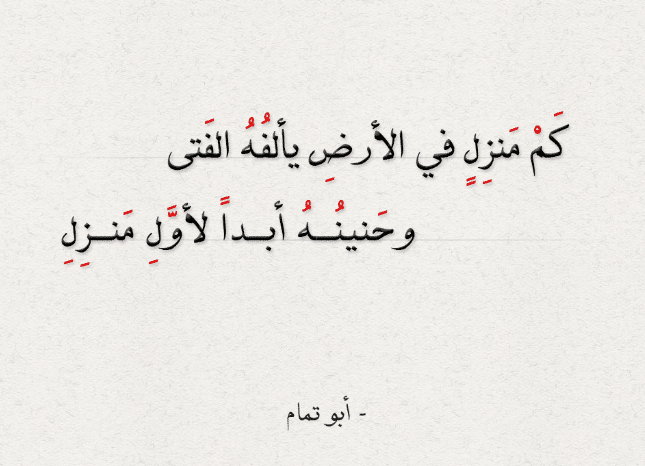 كَمْ مَنزِلٍ في الأرضِ يألفُهُ الفَتى
وحَنينُـــهُ أبــداً لأوَّلِ مَنــزِلِ
- أبو تمام